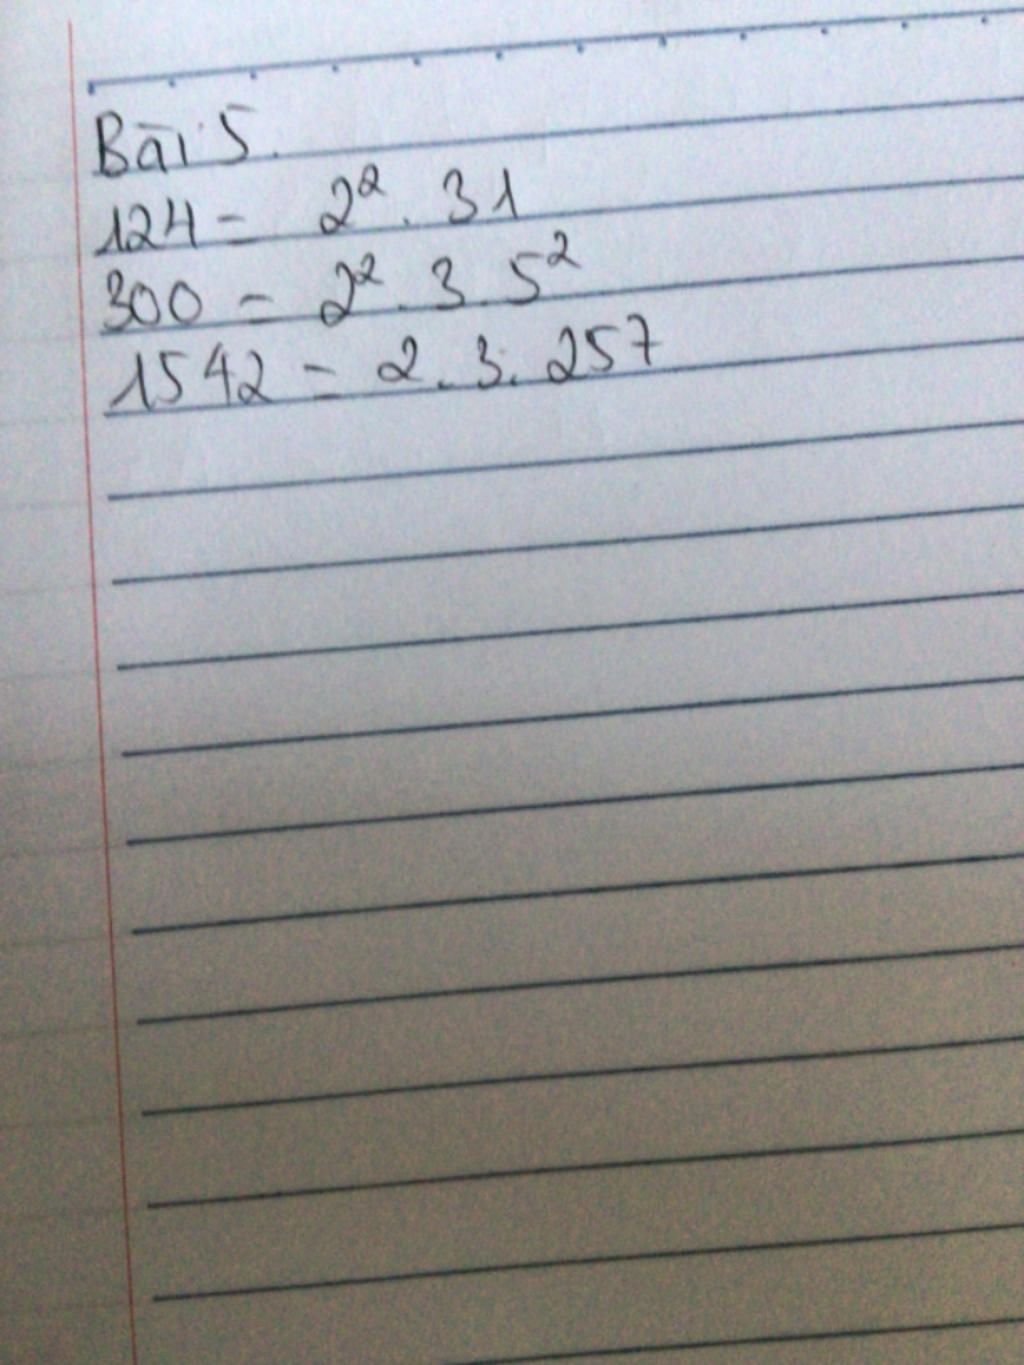 Bài 5.
124 = 2². 31
300 = 2². 3. 5²
1542 = 2. 3. 257